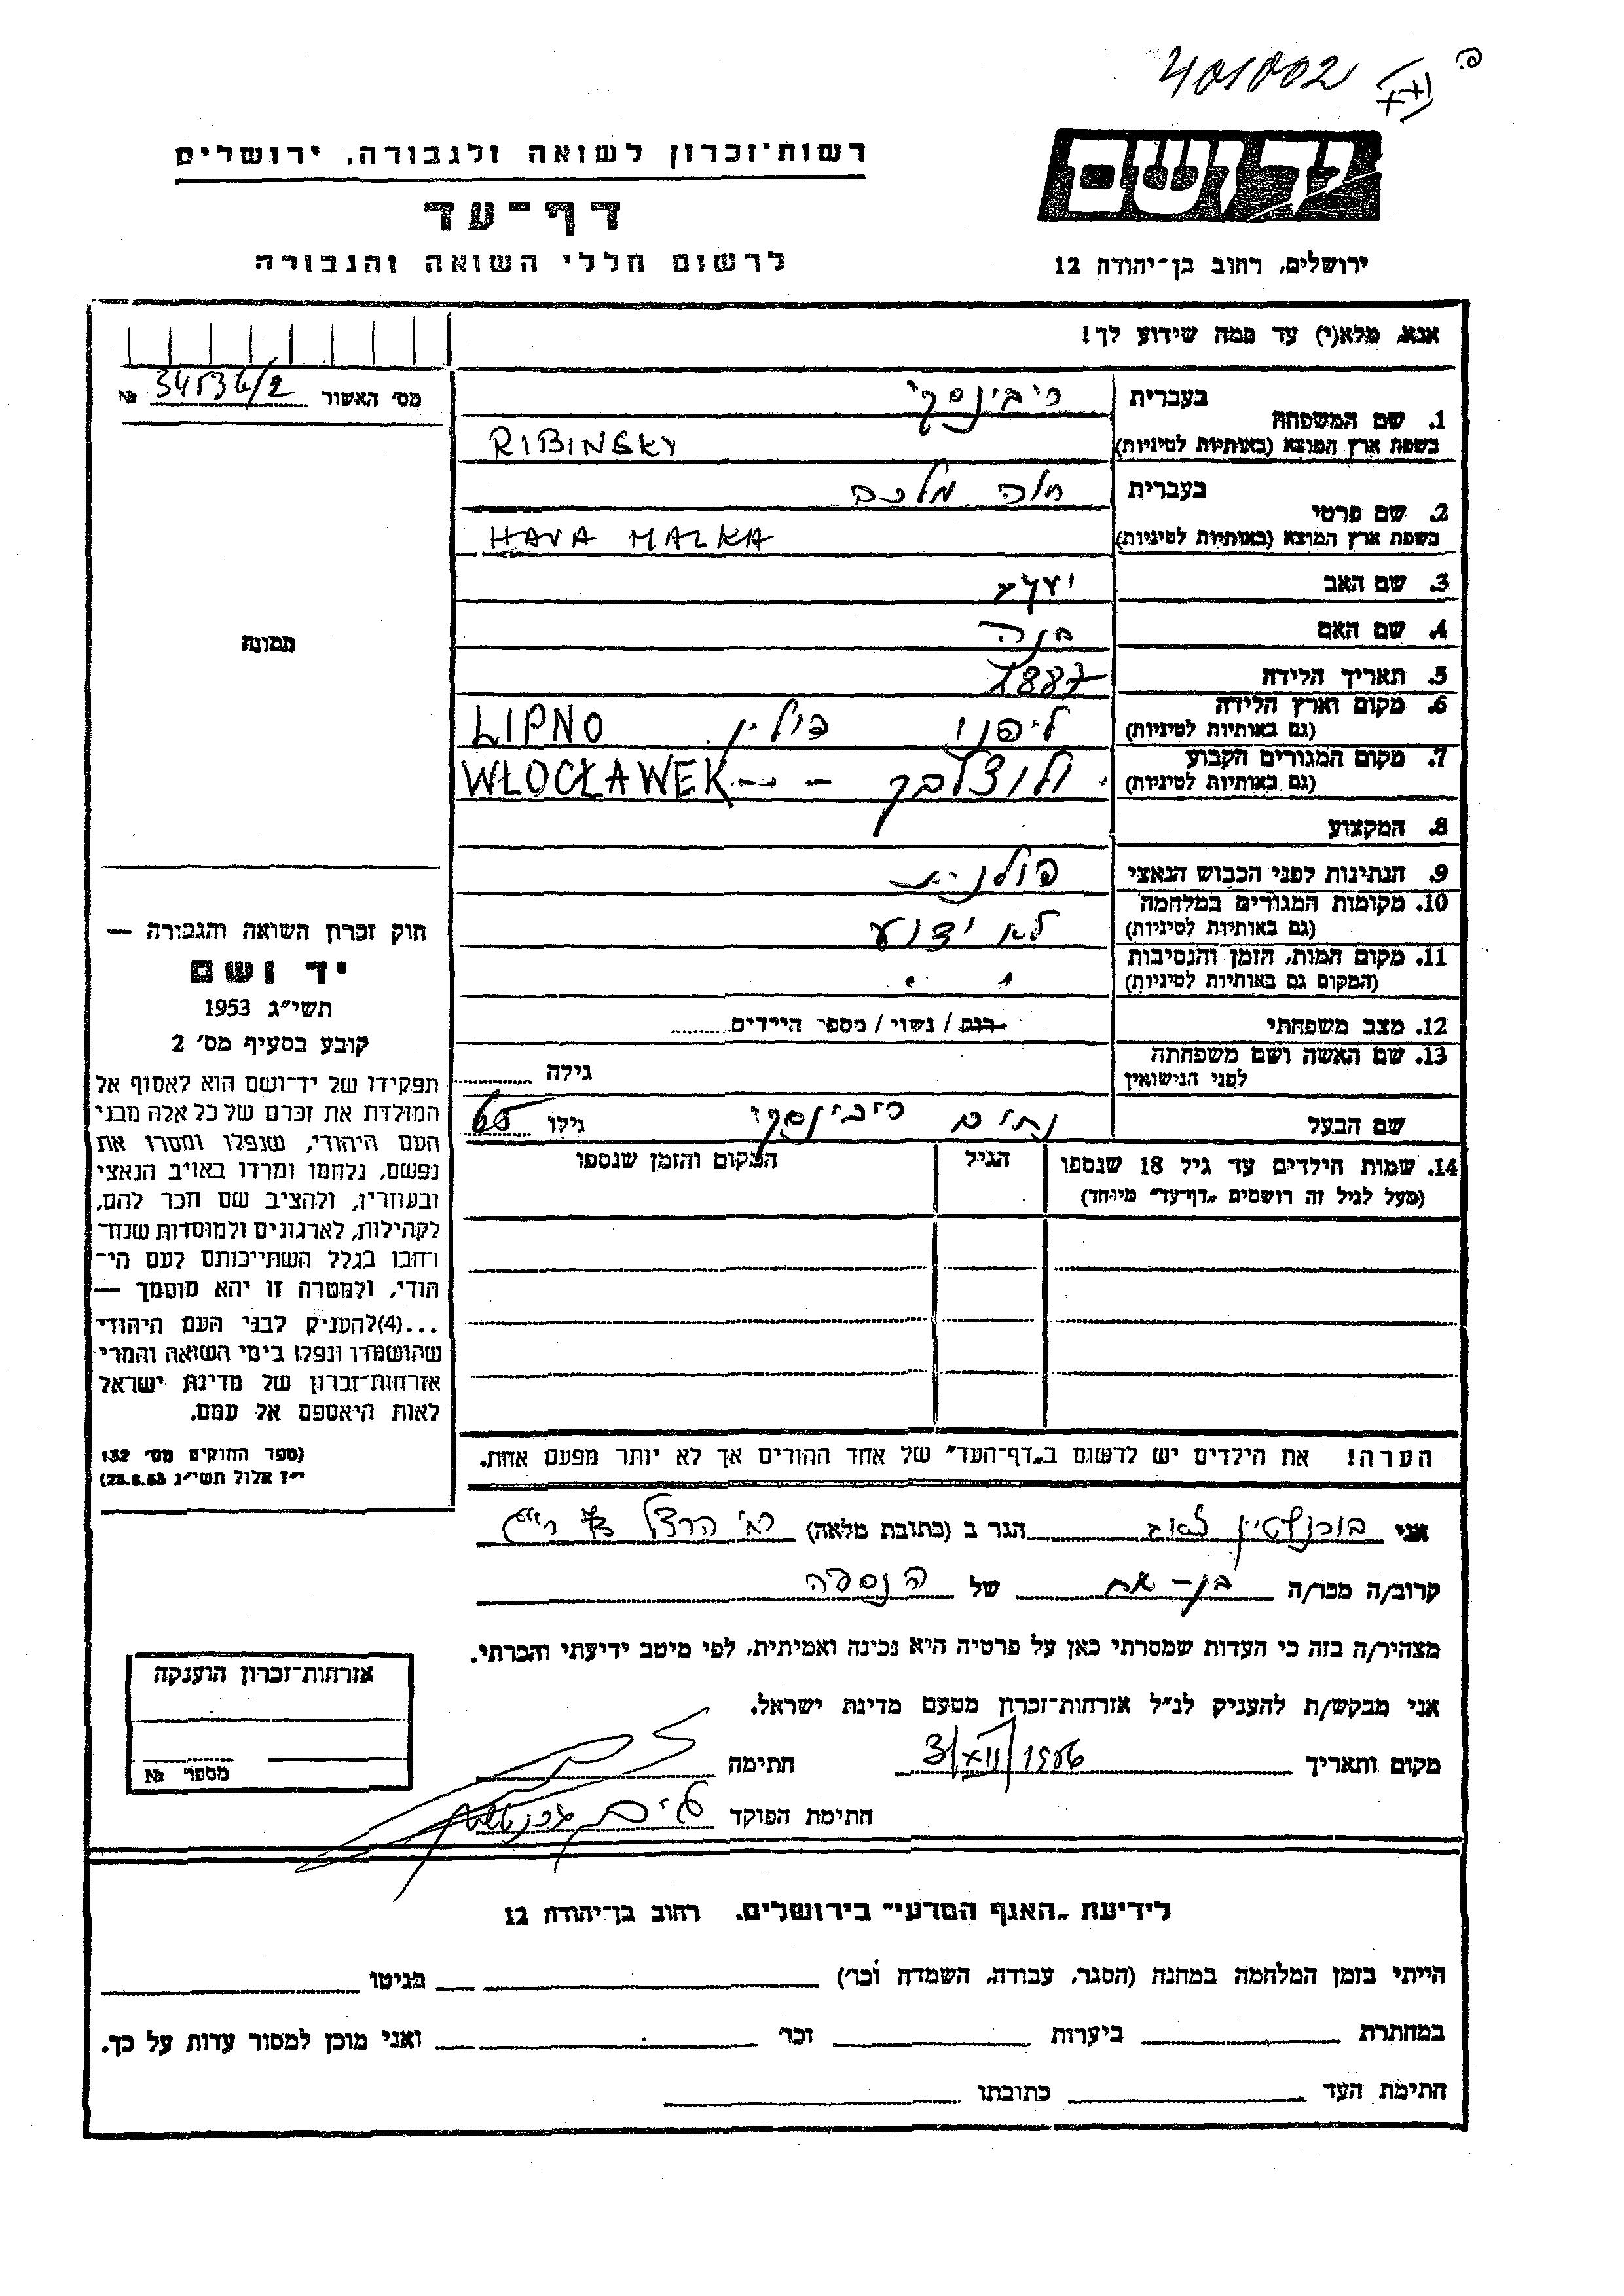 401002
רשות־זכרון לשואה ולגבורה, ירושלים
יד ושם
דף־עד
לרשום חללי השואה והגבורה
ירושלים, רחוב בן־יהודה 12
אנא, מלא(י) עד כמה שידוע לך!
מס׳ האשור № 34536/2
בעברית ריבינסקי
1. שם המשפחה
בשפת ארץ המוצא (באותיות לטיניות) RIBINSKY
בעברית חוה מלכה
2. שם פרטי
בשפת ארץ המוצא (באותיות לטיניות) HAVA MALKA
3. שם האב יעקב
4. שם האם חנה
5. תאריך הלידה 1887
6. מקום וארץ הלידה ליפנו פולין LIPNO
(גם באותיות לטיניות)
7. מקום המגורים הקבוע ולוצלבק - WŁOCŁAWEK --
(גם באותיות לטיניות)
8. המקצוע
9. הנתינות לפני הכבוש הנאצי פולנית
10. מקומות המגורים במלחמה לא ידוע
(גם באותיות לטיניות)
11. מקום המות, הזמן והנסיבות " "
(המקום גם באותיות לטיניות)
12. מצב משפחתי רווק / נשוי / מספר הילדים
13. שם האשה ושם משפחתה גילה
לפני הנישואין
שם הבעל נחום ריבינסקי גילו 65
14. שמות הילדים עד גיל 18 שנספו הגיל המקום והזמן שנספו
(מעל לגיל זה רושמים „דף־עד" מיוחד)
תמונה
חוק זכרון השואה והגבורה —
יד ושם
תשי״ג 1953
קובע בסעיף מס׳ 2
תפקידו של יד־ושם הוא לאסוף אל
המולדת את זכרם של כל אלה מבני
העם היהודי, שנפלו ומסרו את
נפשם, נלחמו ומרדו באויב הנאצי
ובעוזריו, ולהציב שם וזכר להם,
לקהילות, לארגונים ולמוסדות שנח־
רחבו בגלל השתייכותם לעם הי־
הודי, ולמטרה זו יהא מוסמך —
...(4)להעניק לבני העם היהודי
שהושמדו ונפלו בימי השואה והמרי
אזרחות־זכרון של מדינת ישראל
לאות היאספם אל עמם.
(ספר החוקים מס׳ 132
י״ז אלול תשי״ג 28.8.53)
הערה! את הילדים יש לרשום ב„דף־העד" של אחד ההורים אך לא יותר מפעם אחת.
אני בורנשטיין הגר ב (כתובת מלאה) רח׳ הרצל
קרוב/ה מכר/ה בן-אח של הנספה
מצהיר/ה בזה כי העדות שמסרתי כאן על פרטיה היא נכונה ואמיתית, לפי מיטב ידיעתי והכרתי.
אני מבקש/ת להעניק לנ״ל אזרחות־זכרון מטעם מדינת ישראל.
מקום ותאריך 3/XII/1956 חתימה
חתימת הפוקד
אזרחות־זכרון הוענקה
מספר №
לידיעת „האגף המדעי" בירושלים. רחוב בן־יהודה 12
הייתי בזמן המלחמה במחנה (הסגר, עבודה, השמדה וכו׳) בגיטו
במחתרת ביערות וכו׳ ואני מוכן למסור עדות על כך.
חתימת העד כתובתו